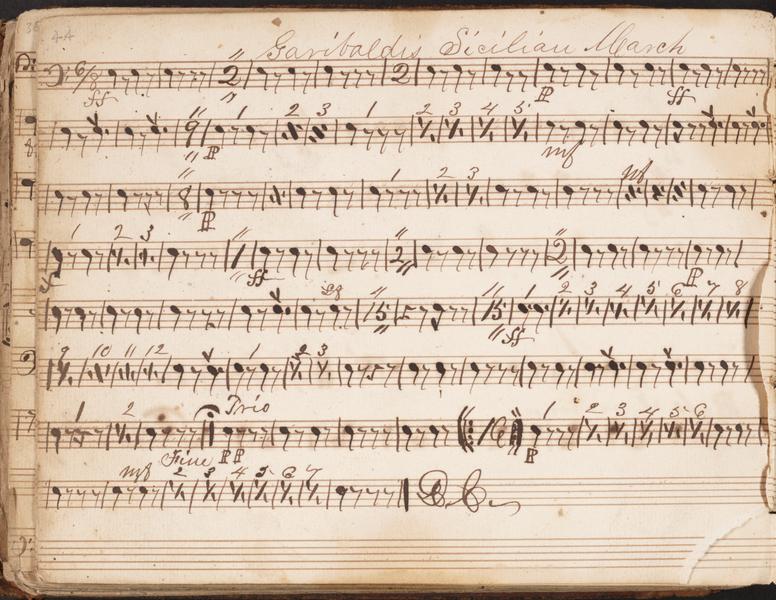 44
Garibaldis Sicilian March
6/8 2 2
ff P ff
9 1 2 3 1 2 3 4 5
P mf
8 1 2 3 mf
P
1 2 3 1 2 2
ff P
15 15 1 2 3 4 5 6 7 8
ff
9 10 11 12 1 2 3
1 2 Trio 16 1 2 3 4 5 6
Fine PP P
mf 2 3 4 5 6 7
D.C.